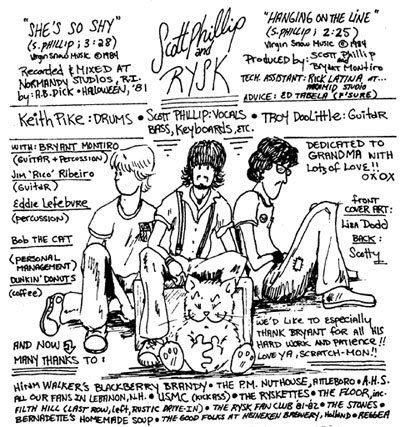 "SHE'S SO SHY"
(S. PHILLIP ; 3:28)
Virgin Snow Music © 1984
Recorded & MIXED AT
NORMANDY STUDIOS, R.I.
by: A.B. DICK • HALOWEEN, '81
Scott Phillip
and
RYSK
"HANGING ON THE LINE"
(S. PHILLIP ; 2:25)
Virgin Snow Music © 1984
Produced by: Scott Phillip
& Bryant Montiro
TECH. ASSISTANT: RICK LATINA AT...
PYRAMID STUDIO
ADVICE: ED TABELA (F'SURE)
Keith Pike: DRUMS • Scott Phillip: VOCALS • Troy Doolittle: Guitar
BASS, Keyboards, etc.
WITH: BRYANT MONTIRO
(GUITAR + PERCUSSION)
Jim 'Rico' Ribeiro
(Guitar)
Eddie Lefebvre
(percussion)
Bob THE CAT
(PERSONAL
MANAGEMENT)
DUNKIN' DONUTS
(coffee)
DEDICATED TO
GRANDMA WITH
Lots of LOVE!!
OXOX
front
COVER ART:
Lisa Dodd
BACK:
Scotty
AND NOW
MANY THANKS TO:
WE'D LIKE to Especially
THANK BRYANT for ALL HIS
HARD WORK AND PATIENCE!!
LOVE YA, SCRATCH-MON!!
HIRAM WALKER'S BLACKBERRY BRANDY • THE P.M. NUTHOUSE, ATTLEBORO • A.H.S.
ALL OUR FANS IN LEBANON, N.H. • USMC (KICKASS) • THE RYSKETTES • THE FLOOR, inc.
FILTH HILL (LAST ROW, left, RUSTIC DRIVE-IN) • THE RYSK FAN CLUB '81-'82 • THE STONES •
BERNADETTE'S HOMEMADE SOUP • THE GOOD FOLKS AT HEINEKEN BREWERY, HOLLAND • REGGEA